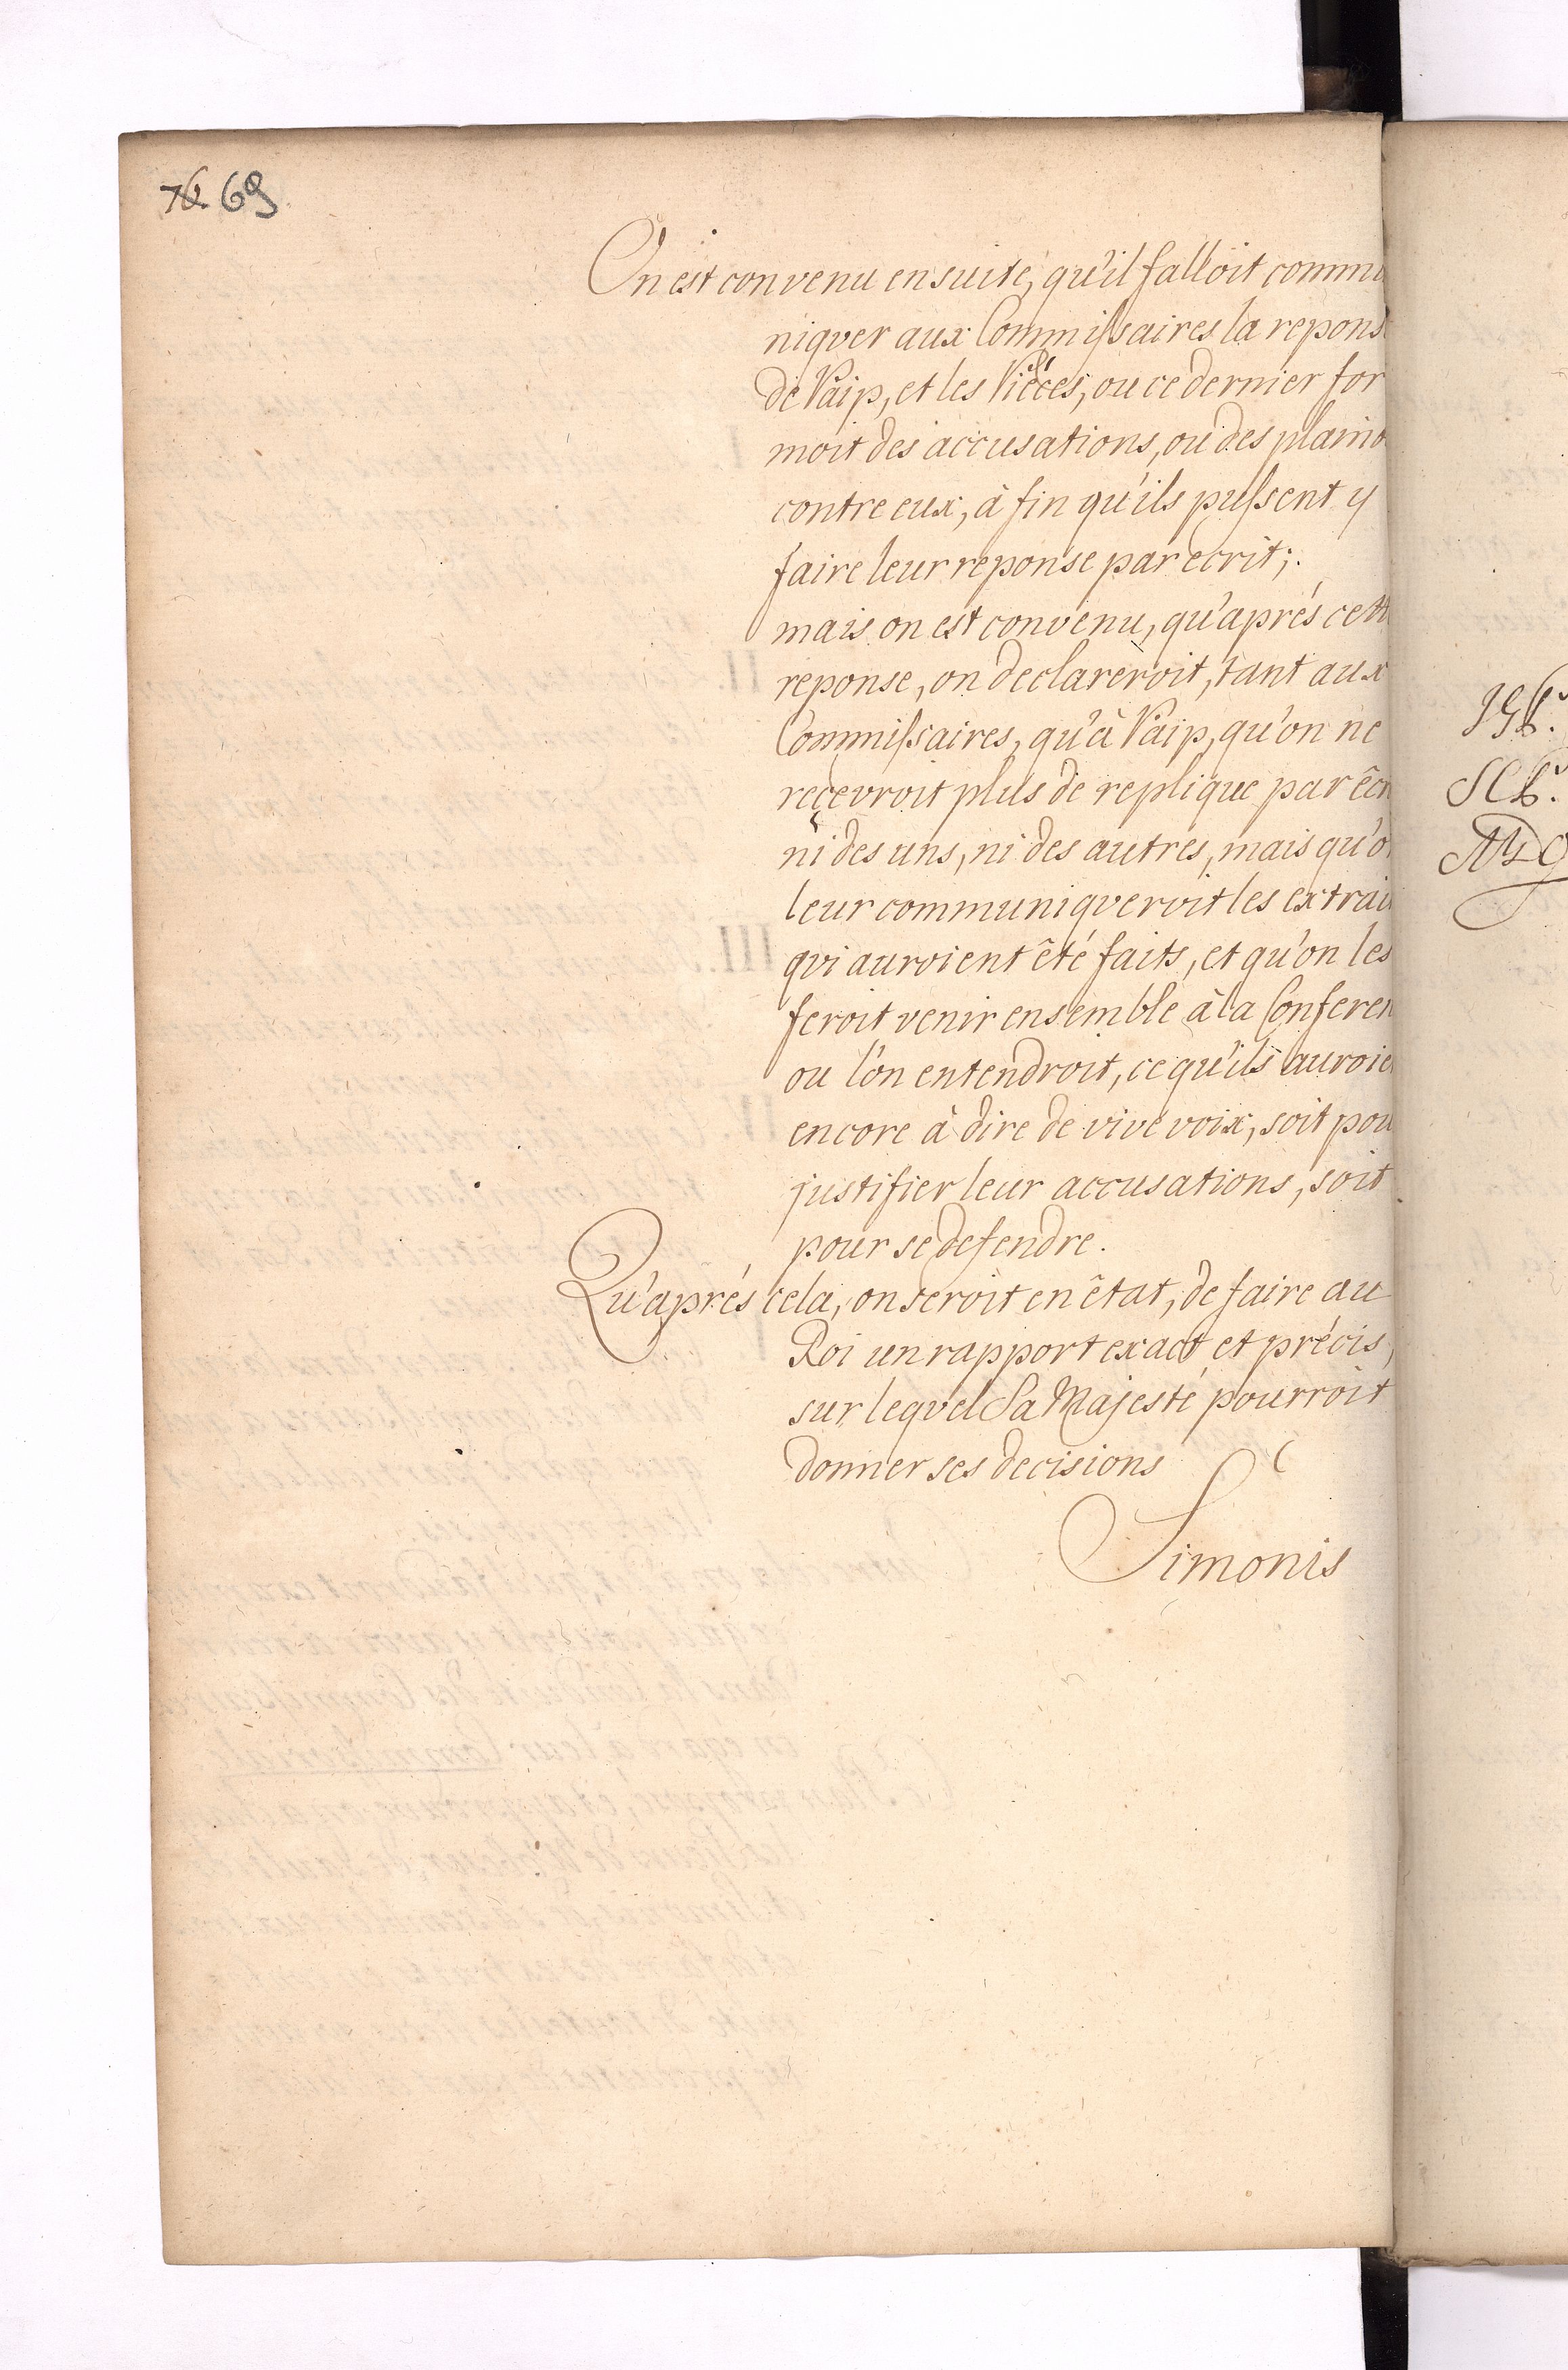 76. 69
On est convenu ensuite, qu'il falloit commu
niqver aux Commissaires la repons
de Vaip, et les Piéces, ou ce dernier for
moit des accusations, ou des plaint
contre eux, à fin qu'ils pussent y
faire leur reponse par ecrit;
mais on est convenu, qu'aprés cett
reponse, on declareroit, tant aux
Commissaires, qu'à Vaip, qu'on ne
reçevroit plus de replique par êcr
ni des uns, ni des autres, mais qu'o
leur communiqveroit les extrai
qvi auroient êté faits, et qu'on les
feroit venir ensemble à la Conferen
ou l'on entendroit, ce qu'ils auroie
encore à dire de vive voix, soit pou
justifier leur accusations, soit
pour se defendre.
Qu'aprés cela, on seroit en êtat, de faire au
Roi un rapport exact et précis,
sur leqvel Sa Majesté pourroit
donner ses decisions
Simonis